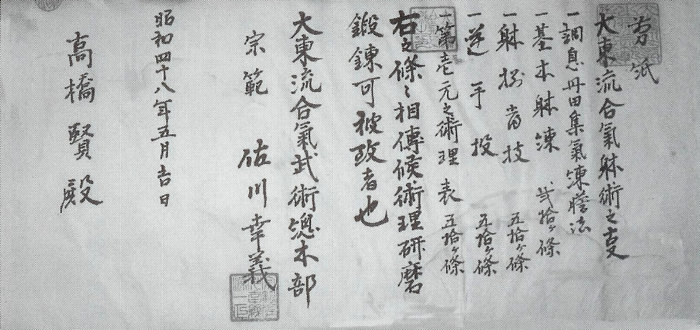 大東流合氣躰術之
一調息丹田集氣煉膽法
一基本躰錬 弐拾ヶ條
一躰捌当技 五拾ヶ條
一逆手投 五拾ヶ條
一第壱元之術理 表 五拾ヶ條
右之條々相傳候術理研磨
鍛錬可被致者也
大東流合氣武術總本部
宗範 佐川幸義
昭和四十八年五月吉日
高橋賢殿